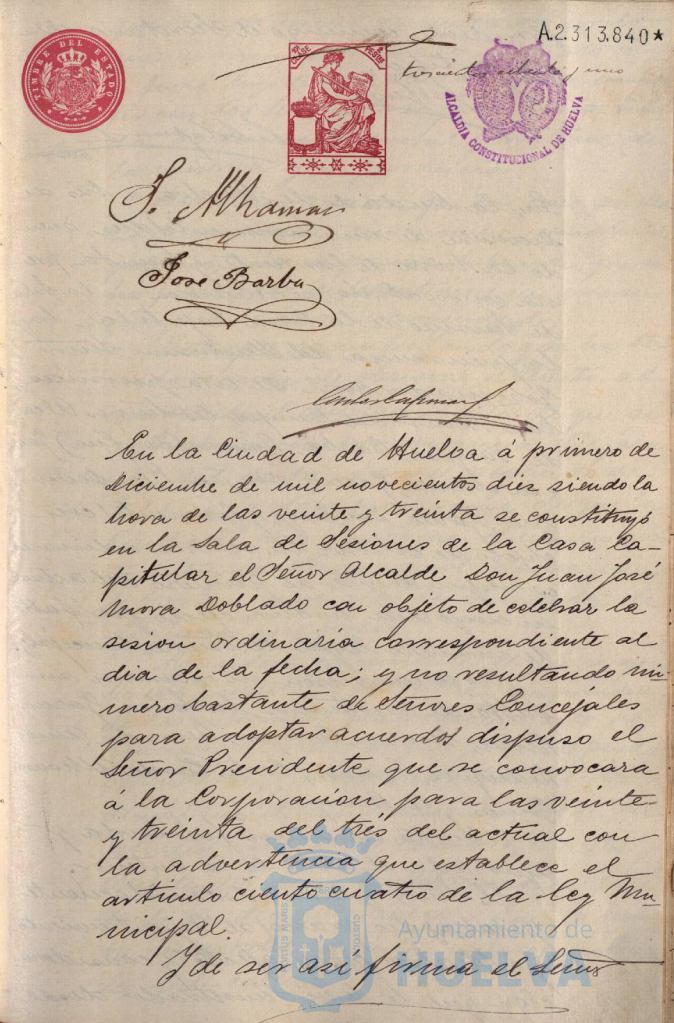 TIMBRE DEL ESTADO
CLASE
PESETA
A.2.313.840*
trescientos ochenta y uno
ALCALDIA CONSTITUCIONAL DE HUELVA
José Barba
En la Ciudad de Huelva á primero de
Diciembre de mil novecientos diez siendo la
hora de las veinte y treinta se constituyó
en la Sala de Sesiones de la Casa Ca-
pitular el Señor Alcalde Don Juan José
Mora Doblado con objeto de celebrar la
sesion ordinaria correspondiente al
dia de la fecha; y no resultando nú-
mero bastante de Señores Concejales
para adoptar acuerdos dispuso el
Señor Presidente que se convocara
á la Corporacion para las veinte
y treinta del tres del actual con
la advertencia que establece el
artículo ciento cuatro de la ley Mu-
nicipal.
Y de ser así firma el Señor
Ayuntamiento de
HUELVA